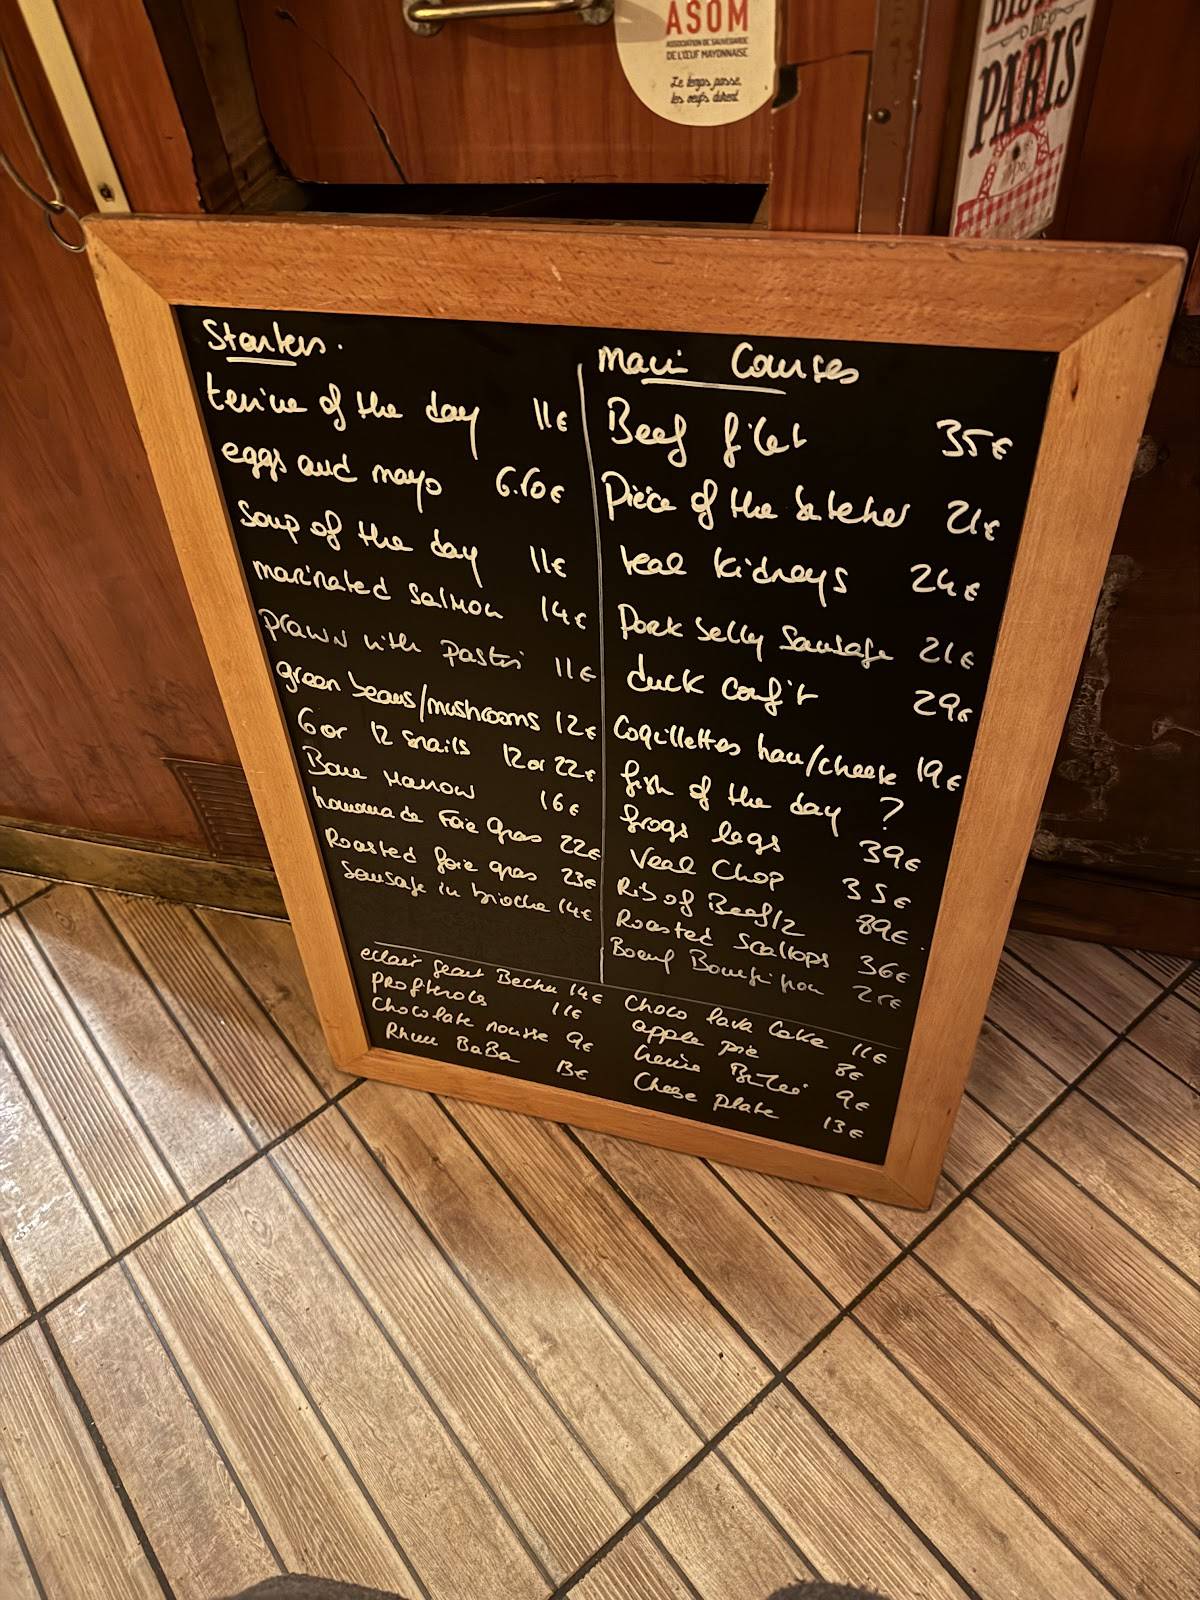 ASOM
ASSOCIATION DE SAUVEGARDE
DE L'ŒUF MAYONNAISE
Le temps passe,
les œufs durent
DE
PARIS
Starters.
terrine of the day 11€
eggs and mayo 6.60€
Soup of the day 11€
marinated Salmon 14€
prawn with pastis 11€
green beans/mushrooms 12€
6 or 12 snails 12 or 22€
Bone Marrow 16€
homemade Foie Gras 22€
Roasted foie gras 23€
Sausage in brioche 14€
Main Courses
Beef filet 35€
Pièce of the butcher 21€
Veal kidneys 24€
Pork belly Sausage 21€
duck confit 29€
Coquillettes ham/cheese 19€
fish of the day ?
frogs legs 39€
Veal Chop 35€
Rib of Beef/2 89€.
Roasted Scallops 36€
Boeuf Bourguignon 25€
eclair geant 14€
Profiterols 11€
Chocolate mousse 9€
Rhum BaBa 13€
Choco lava Cake 11€
apple pie 8€
9€
Cheese plate 13€